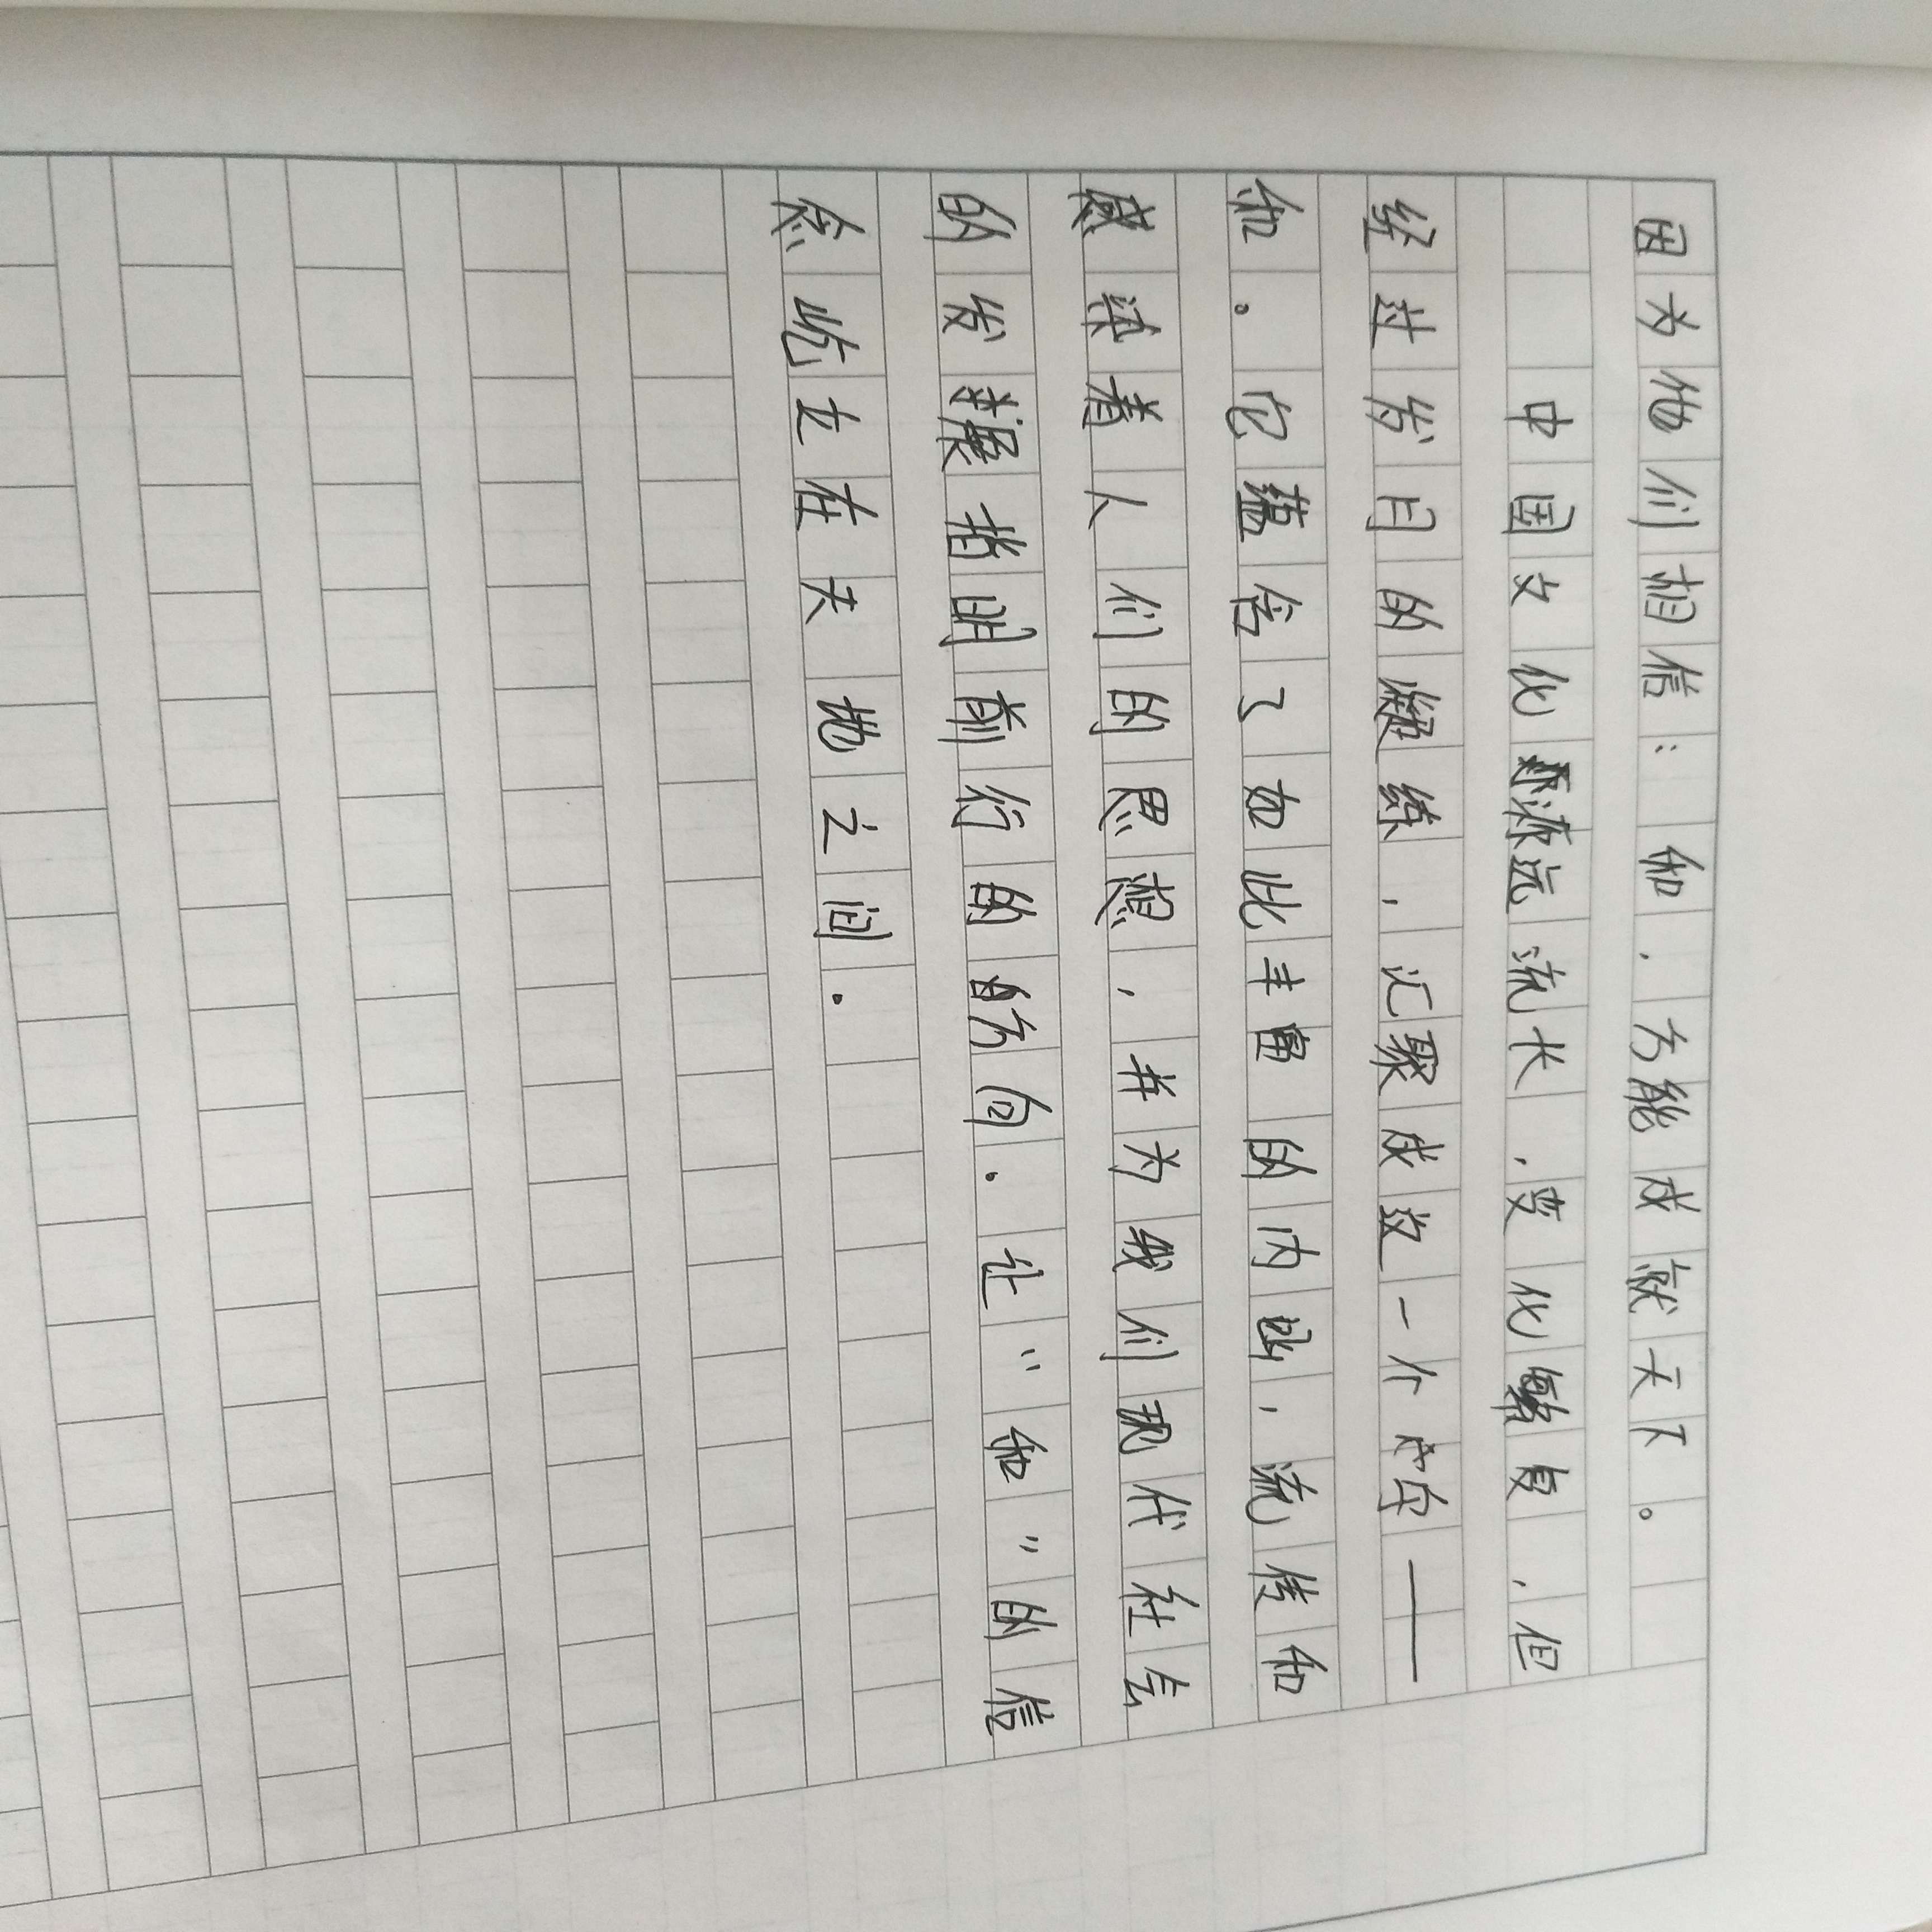 因为他们相信：和，方能成就天下。
中国文化源远流长，变化繁复，但
经过岁月的凝练，汇聚成这一个字——
和。它蕴含了如此丰富的内涵，流传和
感染着人们的思想，并为我们现代社会
的发展指明前行的方向。让“和”的信
念屹立在天地之间。